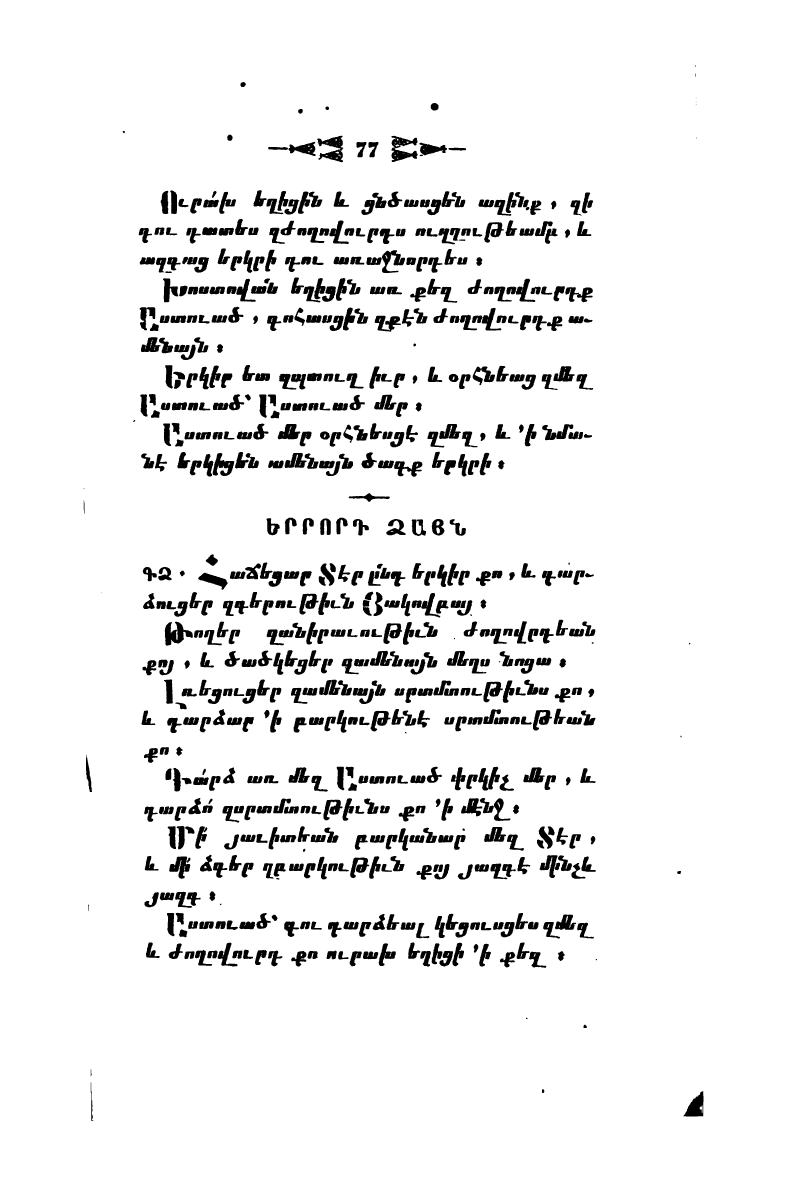 77
Ուրա՛խ եղիցին և ցնծասցեն ազինք, զի
դու դատես զժողովուրդս ուղղութեամբ, և
ազգաց երկրի դու առաջնորդես։
Խոստովա՛ն եղիցին առ քեզ ժողովուրդք
Աստուած, գոհասցին զքէն ժողովուրդք ա-
մենայն։
Երկիր ետ զպտուղ իւր, և օրհնեաց զմեզ
Աստուած՝ Աստուած մեր։
Աստուած մեր օրհնեսցէ զմեզ, և ՚ի նմա-
նէ երկիցեն ամենայն ծագք երկրի։
ԵՐՐՈՐԴ ՁԱՅՆ
ԳՁ. Հաճեցար Տէր ընդ երկիր քո, և դար-
ձուցեր զգերութիւն Յակովբայ։
Թողեր զանիրաւութիւն ժողովրդեան
քոյ, և ծածկեցեր զամենայն մեղս նոցա։
Լռեցուցեր զամենայն սրտմտութիւնս քո,
և դարձար ՚ի բարկութենէ սրտմտութեան
քո։
Դա՛րձ առ մեզ Աստուած փրկիչ մեր, և
դարձո՛ զսրտմտութիւնս քո ՚ի մէնջ։
Մի՛ յաւիտեան բարկանար մեզ Տէր,
և մի՛ ձգեր զբարկութիւն քոյ յազգէ մինչև
յազգ։
Աստուած՝ դու դարձեալ կեցուսցես զմեզ
և ժողովուրդ քո ուրախ եղիցի ՚ի քեզ։